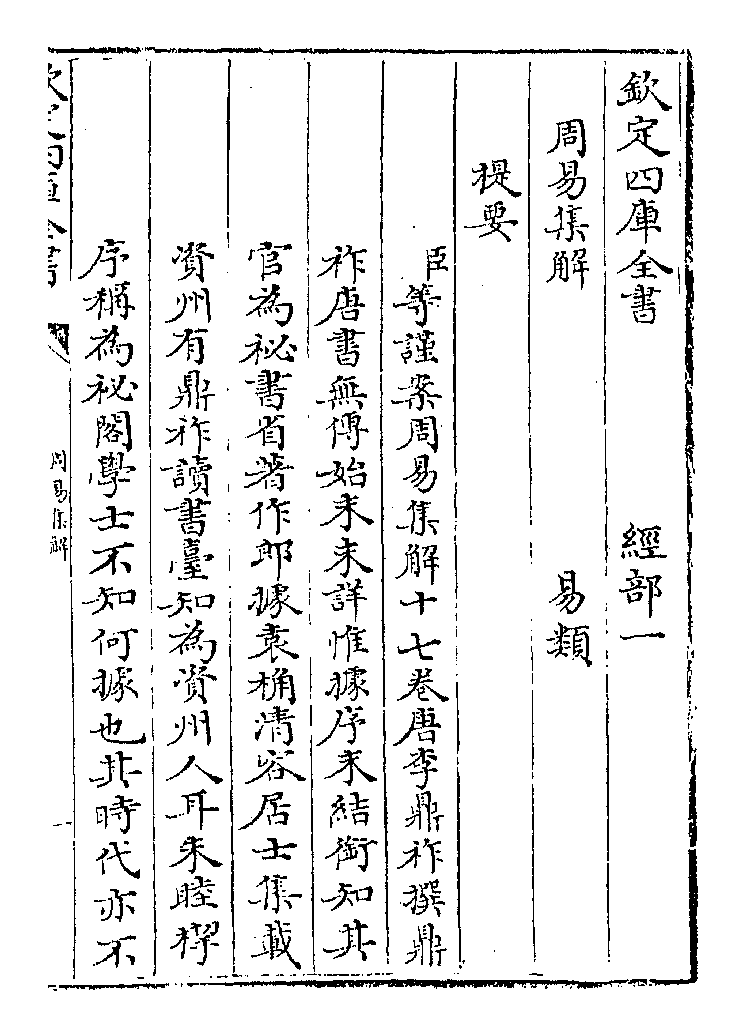 欽定四庫全書 經部一
周易集解 易類
提要
臣等謹案周易集解十七卷唐李鼎祚撰鼎
祚唐書無傳始末未詳惟據序末結銜知其
官為祕書省著作郎據袁桷清容居士集載
資州有鼎祚讀書臺知為資州人耳朱睦㮮
序稱為祕閣學士不知何據也其時代亦不
欽定四庫全書
周易集解
一